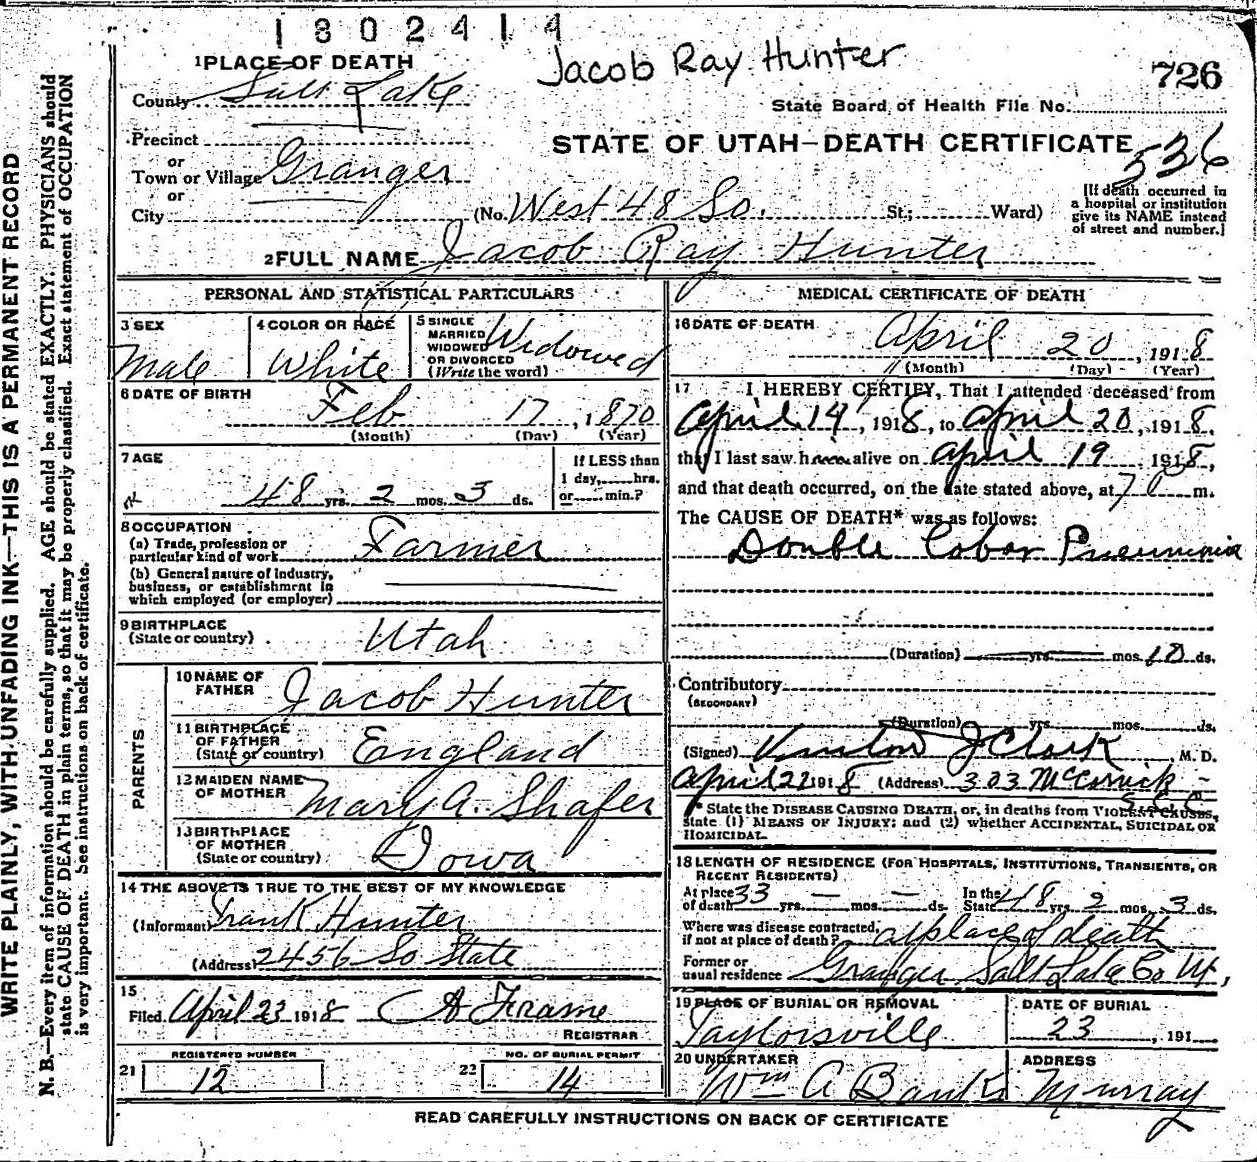 1802414
Jacob Ray Hunter
726
1 PLACE OF DEATH
County Salt Lake
State Board of Health File No.
Precinct
STATE OF UTAH—DEATH CERTIFICATE
536
or
Town or Village Granger
or
City
(No. West 48 So. St.; Ward)
[If death occurred in
a hospital or institution
give its NAME instead
of street and number.]
2 FULL NAME Jacob Ray Hunter
PERSONAL AND STATISTICAL PARTICULARS
3 SEX
Male
4 COLOR OR RACE
White
5 SINGLE
MARRIED
WIDOWED
OR DIVORCED
(Write the word)
Widowed
6 DATE OF BIRTH
Feb 17, 1870
(Month) (Day) (Year)
7 AGE
48 yrs. 2 mos. 3 ds.
If LESS than
1 day, hrs.
or min.?
8 OCCUPATION
(a) Trade, profession or
particular kind of work Farmer
(b) General nature of industry,
business, or establishment in
which employed (or employer)
9 BIRTHPLACE
(State or country)
Utah
PARENTS
10 NAME OF
FATHER
Jacob Hunter
11 BIRTHPLACE
OF FATHER
(State or country)
England
12 MAIDEN NAME
OF MOTHER
Mary A. Shafer
13 BIRTHPLACE
OF MOTHER
(State or country)
Iowa
14 THE ABOVE IS TRUE TO THE BEST OF MY KNOWLEDGE
(Informant) Frank Hunter
(Address) 2456 So State
15
Filed April 23 1918 A Frame
REGISTRAR
REGISTERED NUMBER
21 12
NO. OF BURIAL PERMIT
22 14
MEDICAL CERTIFICATE OF DEATH
16 DATE OF DEATH
April 20, 1918
(Month) (Day) (Year)
17 I HEREBY CERTIFY, That I attended deceased from
April 14, 1918, to April 20, 1918,
that I last saw him alive on April 19 1918,
and that death occurred, on the date stated above, at 7 m.
The CAUSE OF DEATH* was as follows:
Double Lobar Pneumonia
(Duration) yrs. mos. 10 ds.
Contributory
(SECONDARY)
(Duration) yrs. mos. ds.
(Signed) J Clark M. D.
April 22 1918 (Address) 303 McCornick
* State the DISEASE CAUSING DEATH, or, in deaths from VIOLENT CAUSES,
state (1) MEANS OF INJURY; and (2) whether ACCIDENTAL, SUICIDAL OR
HOMICIDAL.
18 LENGTH OF RESIDENCE (FOR HOSPITALS, INSTITUTIONS, TRANSIENTS, OR
RECENT RESIDENTS)
At place
of death 33 yrs. — mos. — ds.
In the
State 48 yrs. 2 mos. 3 ds.
Where was disease contracted,
if not at place of death? at place of death
Former or
usual residence Granger Salt Lake Co Ut,
19 PLACE OF BURIAL OR REMOVAL
Taylorsville
DATE OF BURIAL
23, 191
20 UNDERTAKER
Wm A Banks
ADDRESS
Murray
READ CAREFULLY INSTRUCTIONS ON BACK OF CERTIFICATE
WRITE PLAINLY, WITH UNFADING INK—THIS IS A PERMANENT RECORD
N. B.—Every item of information should be carefully supplied. AGE should be stated EXACTLY. PHYSICIANS should
state CAUSE OF DEATH in plain terms, so that it may be properly classified. Exact statement of OCCUPATION
is very important. See instructions on back of certificate.